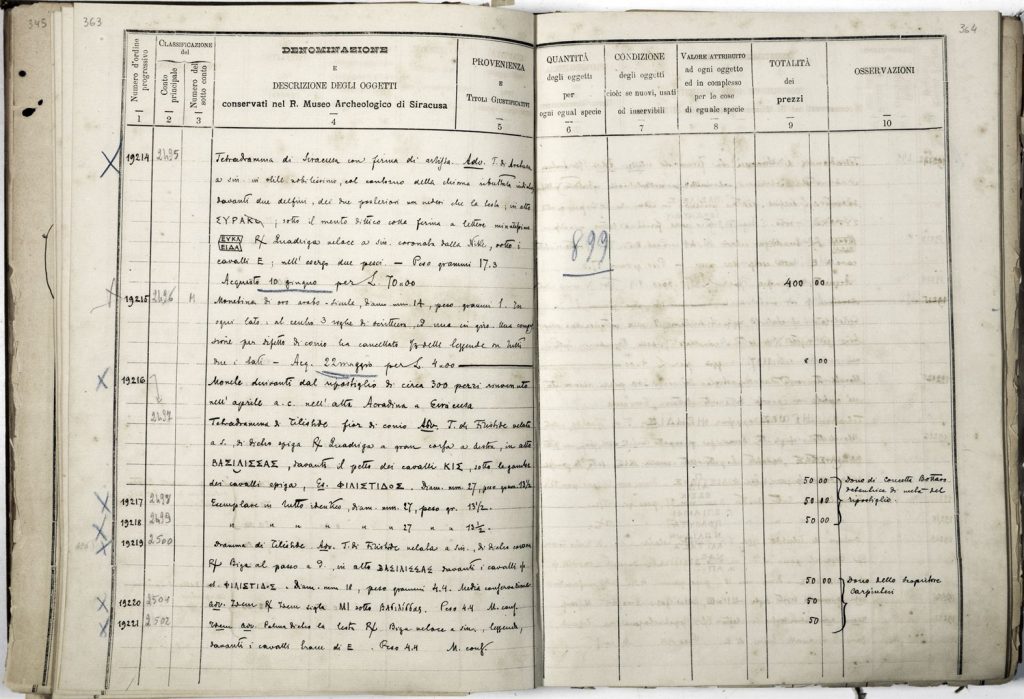 345 363
364
Numero d'ordine progressivo
CLASSIFICAZIONE del
Conto principale
Numero del sotto conto
DENOMINAZIONE
E
DESCRIZIONE DEGLI OGGETTI
conservati nel R. Museo Archeologico di Siracusa
PROVENIENZA
E
TITOLI GIUSTIFICATIVI
1 2 3 4 5
QUANTITÀ
degli oggetti
per
ogni egual specie
CONDIZIONE
degli oggetti
cioè: se nuovi, usati
od inservibili
VALORE ATTRIBUITO
ad ogni oggetto
ed in complesso
per le cose
di eguale specie
TOTALITÀ
dei
prezzi
OSSERVAZIONI
6 7 8 9 10
19214 2495 Tetradramma di Siracusa con firma di artista. Adv. T. di
a sin. in stile nobilissimo, col contorno della chioma
davanti due delfini, dei due posteriori non vedesi che la testa; in alto
ΣΥΡΑΚ ; sotto il mento dittico colla firma a lettere minutissime
ΕΥΚΛ
ΕΙΔΑ
R/ Quadriga veloce a sin. coronata dalla Nike, sotto i
cavalli E; nell' esergo due pesci. — Peso grammi 17.3
Acquisto 10 giugno per L. 70.00
899
400 00
19215 2496 M Monetina di oro arabo-sicula, diam. mm. 14, peso grammi 1. In
ogni lato: al centro 3 righe di scrittura, ed una in giro. Una
sione per difetto di conio ha cancellato delle leggende in tutti
due i lati — Acq. 22 maggio per L. 4.00
8 00
19216 Monete derivanti dal ripostiglio di circa 300 pezzi rinvenuto
nell' aprile a. c. nell' alta Acradina a Siracusa
2497 Tetradramma di Filistide fior di conio Adv. T. di Filistide velata
a s., di dietro spiga R/ Quadriga a gran corsa a destra, in alto
ΒΑΣΙΛΙΣΣΑΣ, davanti il petto dei cavalli ΚΙΣ, sotto le gambe
dei cavalli spiga, Es. ΦΙΛΙΣΤΙΔΟΣ. Diam. mm. 27, peso gram. 13½
50 00 Dono di Concetta Bottaro
detentrice di metà del
ripostiglio.
19217 2498 Esemplare in tutto identico, diam. mm. 27, peso gr. 13½.
50 00
19218 2499 " " " " " " 27 " 13½.
50 00
19219 2500 Dramma di Filistide Adv. T. di Filistide velata a sin., di dietro
R/ Biga al passo a d., in alto ΒΑΣΙΛΙΣΣΑΣ davanti i cavalli
es. ΦΙΛΙΣΤΙΔΟΣ. Diam. mm. 18, peso grammi 4.4. Media conservazione
50 00 Dono dello scopritore
Carpinteri
19220 2501 adv. Idem R/ Idem sigla ΜΙ sotto ΒΑΣΙΛΙΣΣΑΣ. Peso 4.4 M. conf.
50
19221 2502 Idem adv. Palma dietro la testa R/ Biga veloce a sin., leggenda,
50
davanti i cavalli tracce di E. Peso 4.4 M. conf.